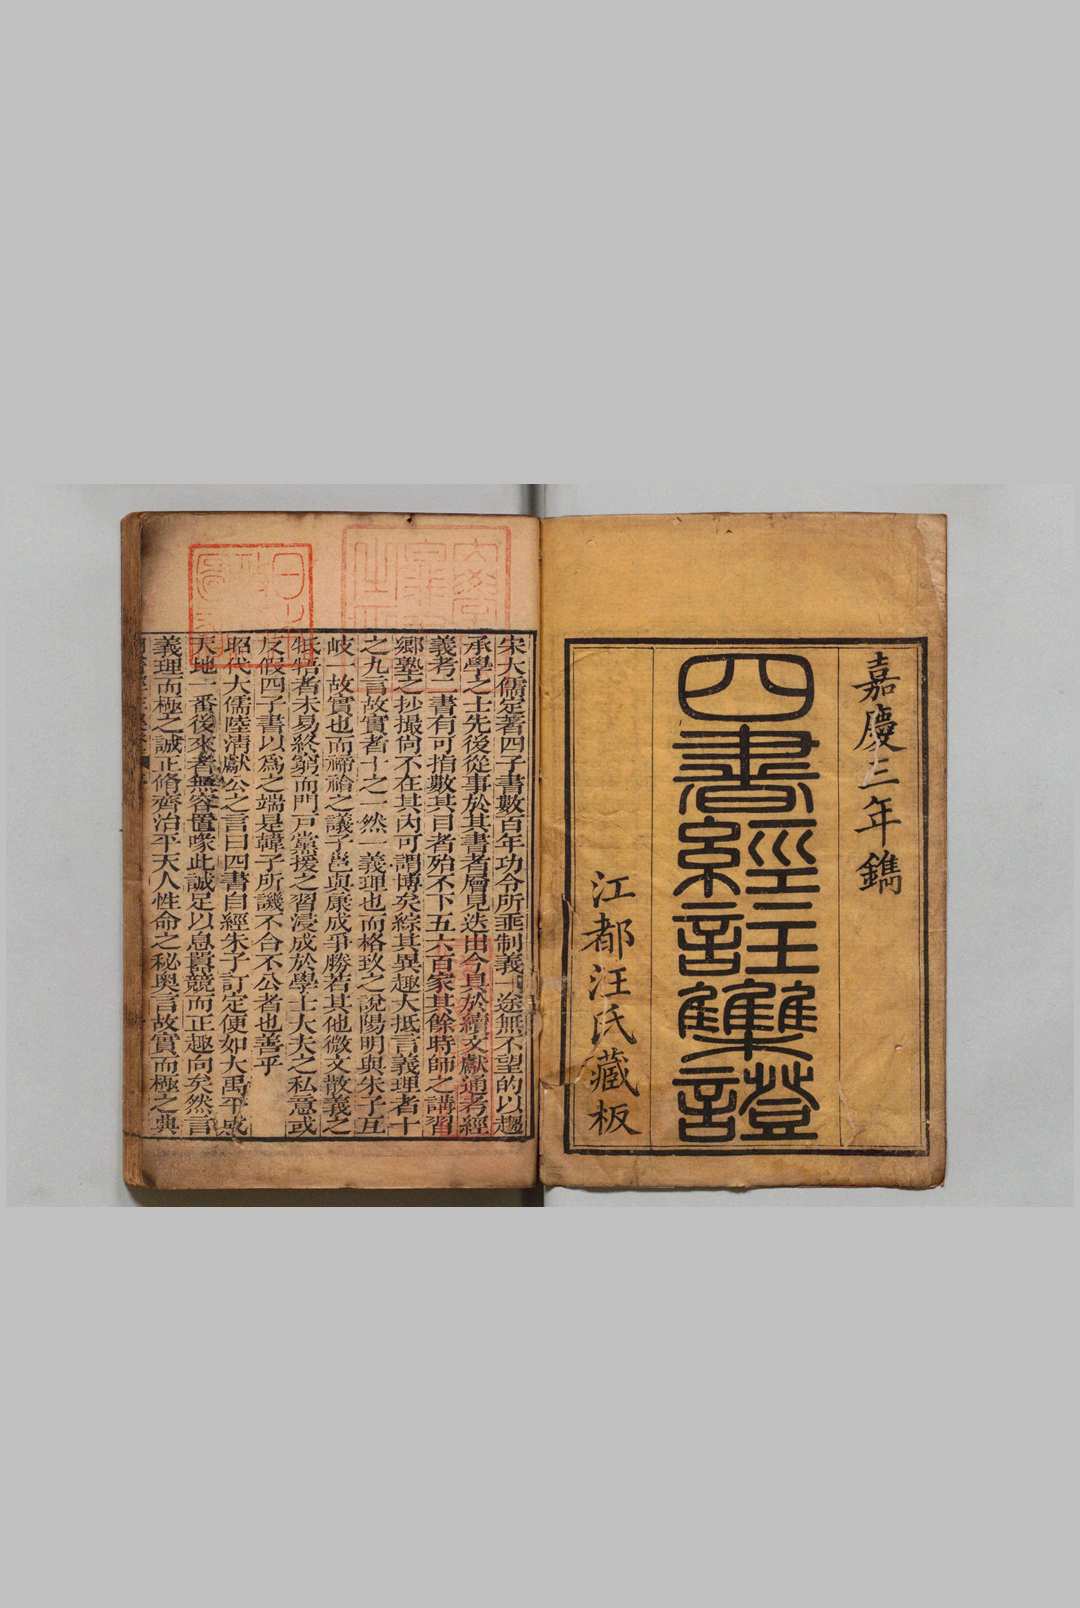 嘉慶三年鐫
四書經注集證
江都汪氏藏板
宋大儒定著四子書數百年功令所垂制義一途無不望的以趨
承學之士先後從事於其書者層見迭出今具於續文獻通考經
義考二書有可指數其目者殆不下五六百家其餘時師之講習
鄉塾之抄撮尙不在其內可謂博矣綜其異趣大抵言義理者十
之九言故實者十之一然一義理也而格致之說陽明與朱子互
岐一故實也而禘祫之議子邕與康成爭勝若其他微文散義之
牴牾者未易終窮而門戸黨援之習浸成於學士大夫之私意或
反假四子書以爲之端是韓子所譏不合不公者也善乎
昭代大儒陸淸獻公之言曰四書自經朱子訂定便如大禹平成
天地一番後來者無容置喙此誠足以息囂競而正趣向矣然言
義理而極之誠正脩齊治平天人性命之秘奥言故實而極之典